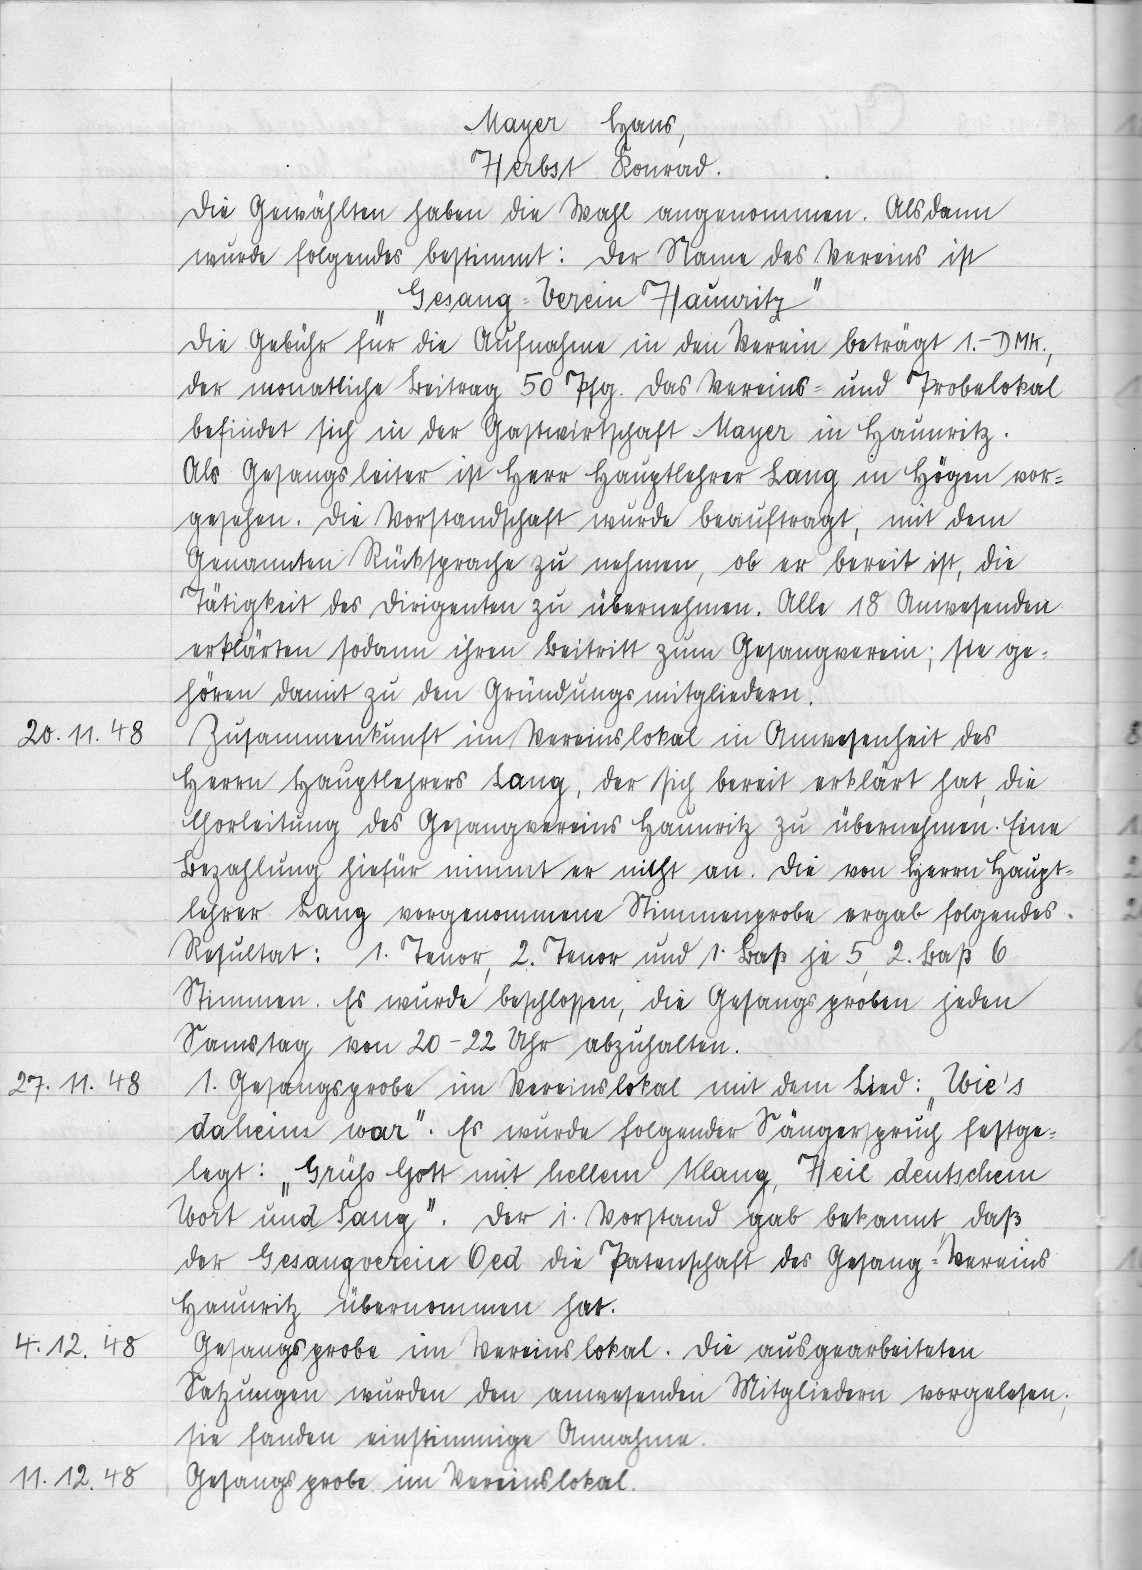 Mayer Hans,
Herbst Konrad.
Die Gewählten haben die Wahl angenommen. Alsdann
wurde folgendes bestimmt: Der Name des Vereins ist
„Gesang=Verein Haunritz"
Die Gebühr für die Aufnahme in den Verein beträgt 1.- DMk.,
der monatliche Beitrag 50 Pfg. Das Vereins= und Probelokal
befindet sich in der Gastwirtschaft Mayer in Haunritz.
Als Gesangsleiter ist Herr Hauptlehrer Lang in Högen vor=
gesehen. Die Vorstandschaft wurde beauftragt, mit dem
Genannten Rücksprache zu nehmen, ob er bereit ist, die
Tätigkeit des Dirigenten zu übernehmen. Alle 18 Anwesenden
erklärten sodann ihren Beitritt zum Gesangverein; sie ge=
hören damit zu den Gründungsmitgliedern.
20.11.48 Zusammenkunft im Vereinslokal in Anwesenheit des
Herrn Hauptlehrers Lang, der sich bereit erklärt hat, die
Chorleitung des Gesangvereins Haunritz zu übernehmen. Eine
Bezahlung hiefür nimmt er nicht an. Die von Herrn Haupt=
lehrer Lang vorgenommene Stimmenprobe ergab folgendes
Resultat: 1. Tenor, 2. Tenor und 1. Baß je 5, 2. Baß 6
Stimmen. Es wurde beschlossen, die Gesangsproben jeden
Samstag von 20-22 Uhr abzuhalten.
27.11.48 1. Gesangsprobe im Vereinslokal mit dem Lied: „Wie's
daheim war". Es wurde folgender Sängerspruch festge=
legt: „Grüß Gott mit hellem Klang, Heil deutschem
Wort und Sang". Der 1. Vorstand gab bekannt, daß
der Gesangverein Oed die Patenschaft des Gesang=Vereins
Haunritz übernommen hat.
4.12.48 Gesangsprobe im Vereinslokal. Die ausgearbeiteten
Satzungen wurden den anwesenden Mitgliedern vorgelesen;
sie fanden einstimmige Annahme.
11.12.48 Gesangsprobe im Vereinslokal.